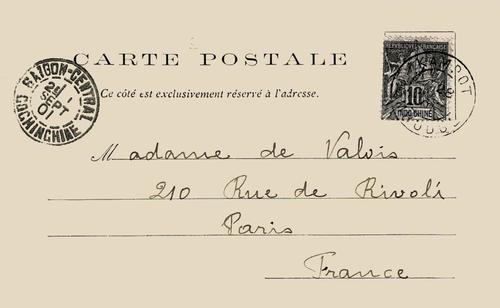 CARTE POSTALE
Ce côté est exclusivement réservé à l'adresse.
SAIGON-CENTRAL
21
SEPT
01
COCHINCHINE
REPUBLIQUE FRANÇAISE
10
INDO-CHINE
Madame de Valois
210 Rue de Rivoli
Paris
France